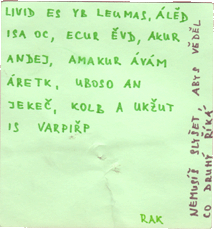 LIVID ES YB LEUMAS, ÁLĚD
ISA OC, ECUR ĚVD, AKUR
ANDEJ, AMAKUR ÁVÁM
ÁRETK, UBOSO AN
JEKEČ, KOLB A UKŽUT
IS VARPIŘP
RAK
NEMUSÍŠ SLYŠET, ABYS VĚDĚL
CO DRUHÝ ŘÍKÁ